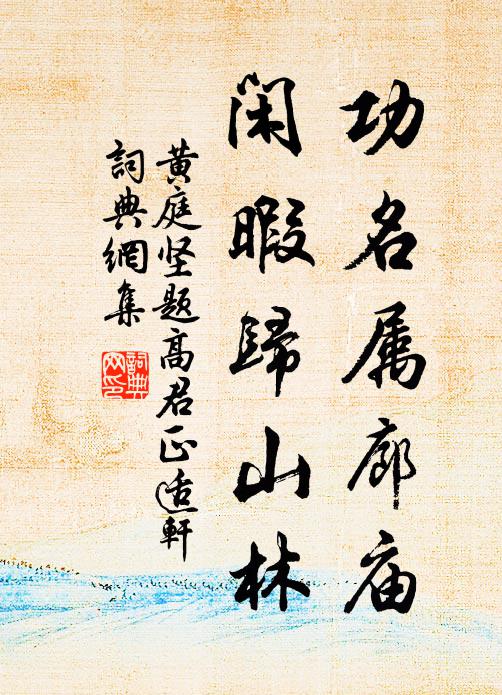 功名属廊庙
闲暇歸山林
黄庭坚题高君正适軒
詞典網集
詞典网印